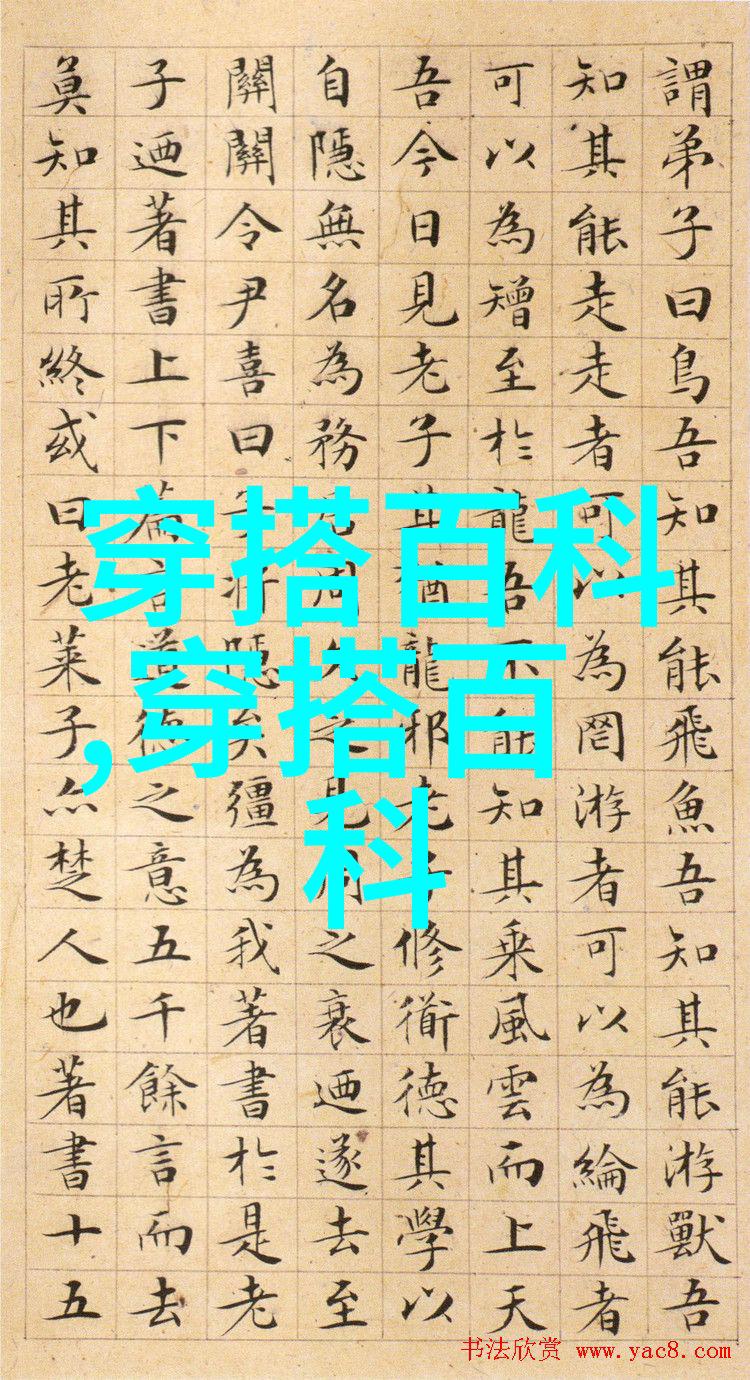 謂弟子曰鳥吾知其能飛魚吾知其能游獸吾
知其能走走者可以為罔游者可以為綸飛者
可以為矰至於龍吾不能知其乘風雲而上天
吾今日見老子其猶龍邪老子修衟德其學以
自隱無名為務居周久之見周之衰迺遂去至
關關令尹喜曰子將隱矣彊為我著書於是老
子迺著書上下篇言道德之意五千餘言而去
莫知其所終或曰老萊子亦楚人也著書十五
穿搭百科
,穿搭百
科
书法欣赏 www.yac8.com